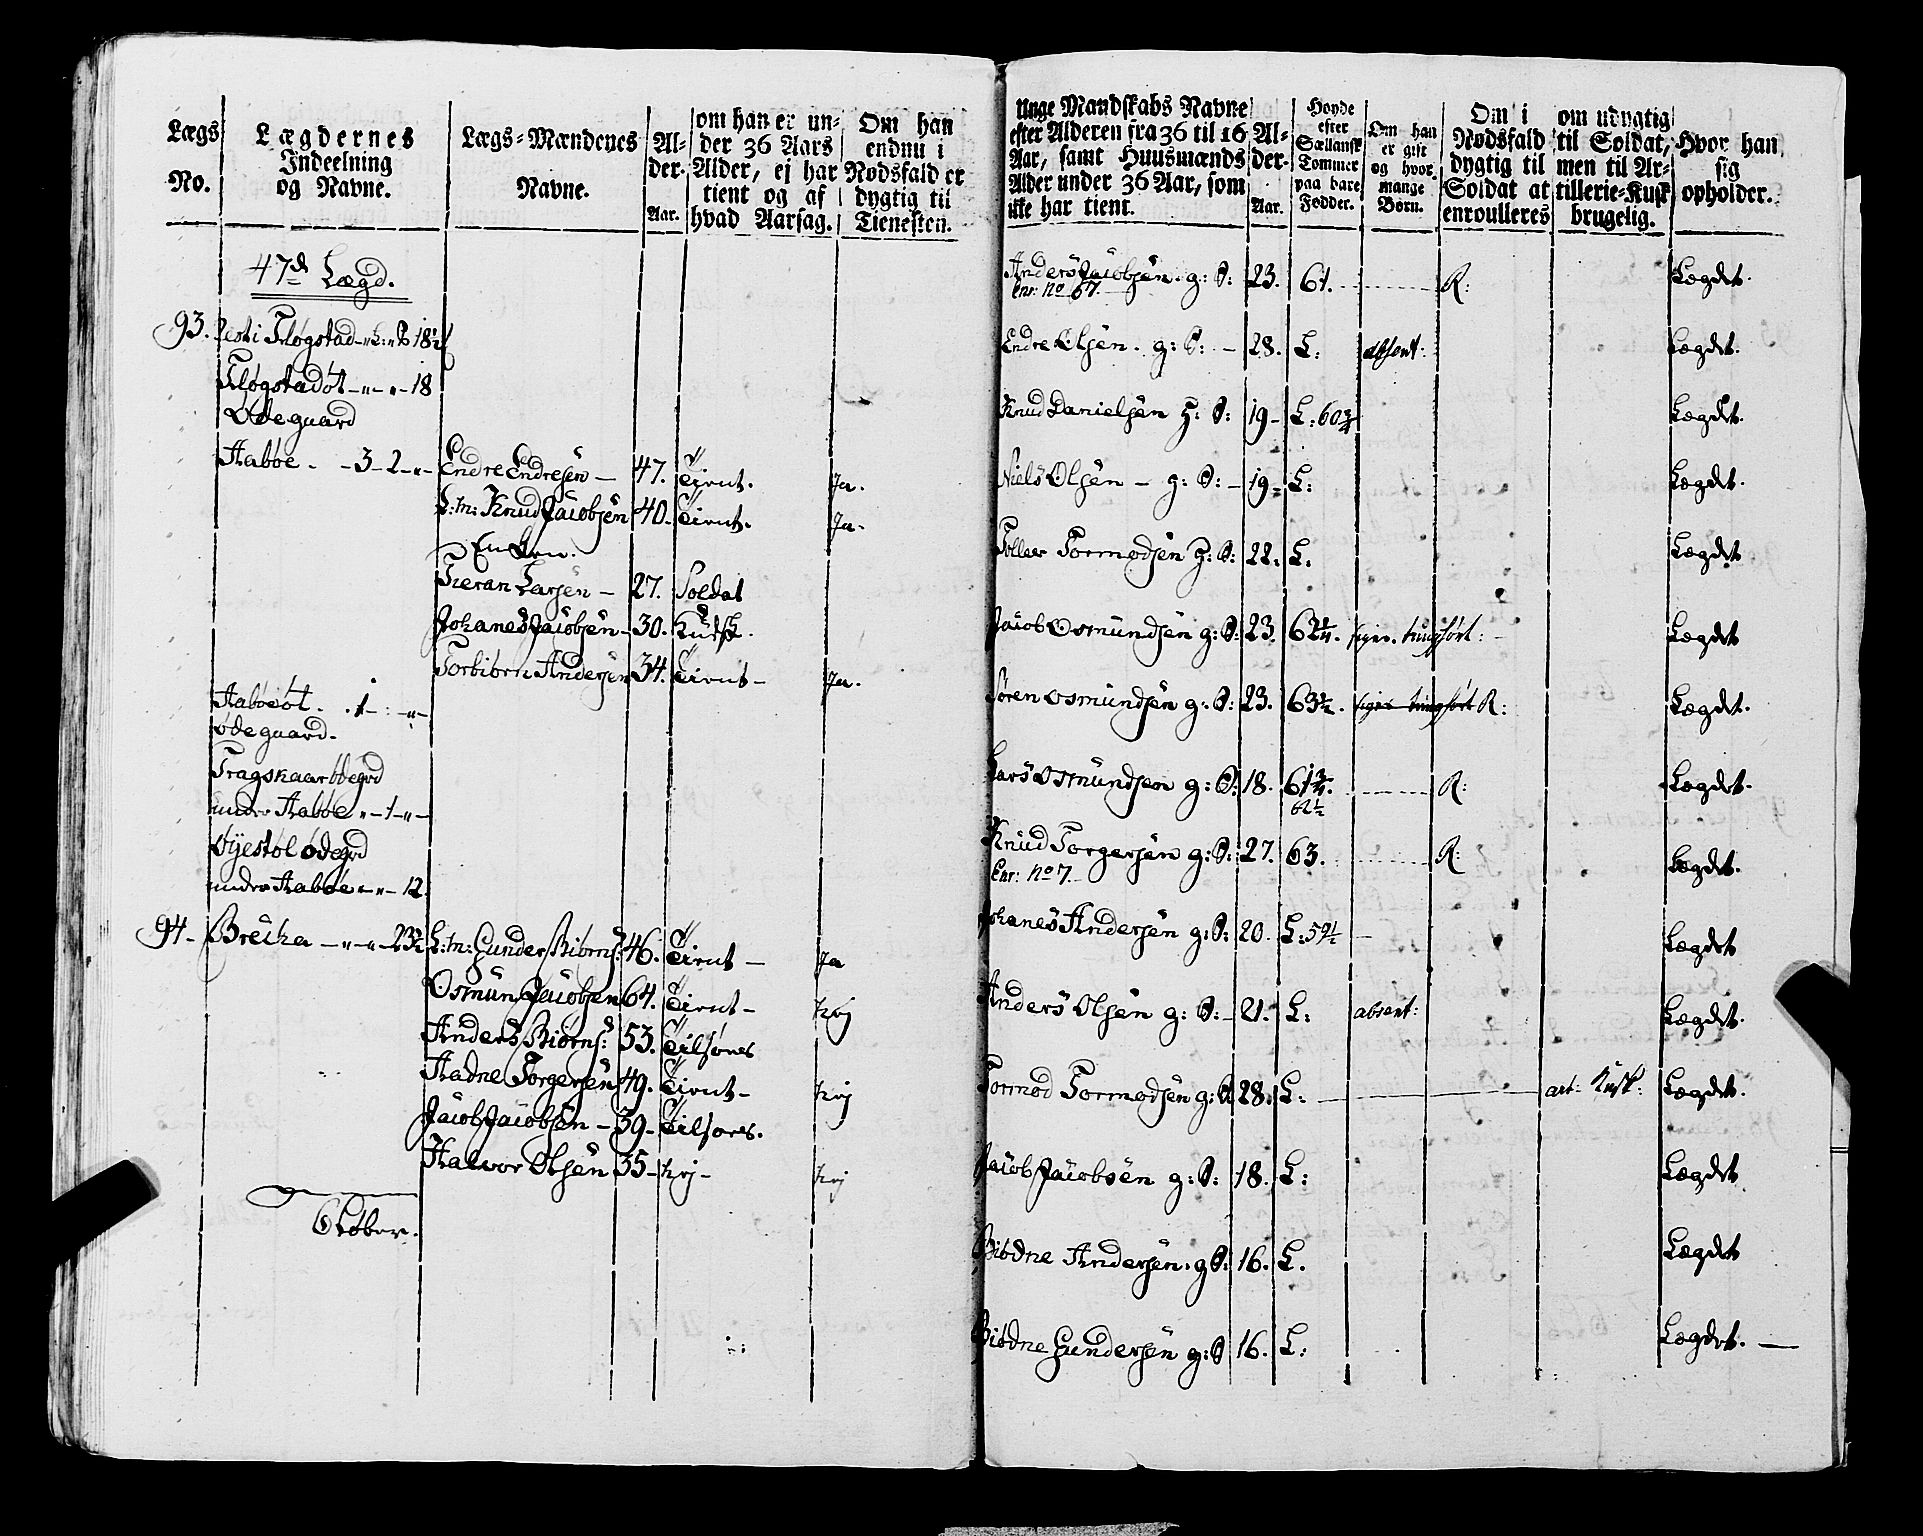 Lægs No.
Lægdernes Indeelning og Navne.
Lægs-Mændenes Navne.
Al-der. Aar.
om han er un-der 36 Aars Alder, ej har tient og af hvad Aarsag.
Om han endnu i Nødsfald er dygtig til Tienesten.
47d Lægd.
93. Flogstad 18½
Flogstadøt - " - " - 18
Ødeguard
Aabøe - 3 - 2 - " - Endre Endresen - 47. Tient. Ja.
L:m: Knud Jacobsen 40. Tient. Ja.
Enken.
Tieran Larsen - 27. Soldat
Johanes Jacobsen - 30. Kudsk.
Torbiörn Andersen 34. Tient - Ja.
Aabøeøt . 1 - " -
ødeguard.
Ødegrd
under Aabøe " - 1 - " -
Øyestøl ødegrd
under Aabøe " - " - 12
94 - Breika - " - " - 23½ L:m: Gunder Biörns: 46. Tient - Ja
Osmun Jacobsen 64. Tient - Nej
Anders Biörns: 53. Tilforn
Aadne Torgersen 49. Tient - Nej
Jacob Jacobsen - 39 - Tilforn.
Halvor Olsen 35 - Nej - Nej
6 Løber.
Unge Mandskabs Navne efter Alderen fra 36 til 16 Aar, samt Huusmænds Alder under 36 Aar, som ikke har tient.
Al-der. Aar.
Høyde efter Sællansk Tommer paa bare Fødder.
Om han er gift og hvor mange Børn.
Om i Nødsfald dygtig til Soldat at enroulleres
om udygtig til Soldat, men til Ar-tillerie-Kusk brugelig.
Hvor han sig opholder.
Anders Jacobsen. g: S: 23. 61. R: Lægdet.
Enr: No 67.
Endre Olsen. g: S: - 28. L: absent: Lægdet.
Knud Danielsen H: S: 19 - L: 60¾ Lægdet.
Niels Olsen - g: S: - 19 - L: Lægdet.
Tollev Tormodsen H: S: 22. L: Lægdet
Jacob Osmundsen g: S: 23. 62¼. siger tungført: Lægdet
Søren Osmundsen g: S: 23. 63½. siger tungført R: Lægdet.
Lars Osmundsen g: S: 18. 61¾. R: Lægdet.
62½
Knud Torgersen g: S: 27. 63. R: Lægdet.
Enr: No 7.
Johanes Andersen g: S: 20. L: 59½ - Lægdet
Anders Olsen g: S: - 21. L: absent: Lægdet.
Tormod Tormodsen g: S: 28. L: art: Kusk: Lægdet.
Jacob Jacobsen g: S: 18. L: Lægdet
Biödne Andersen. g S: 16. L. Lægdet
Biödne Gundersen g: S 16. L: Lægdet. -